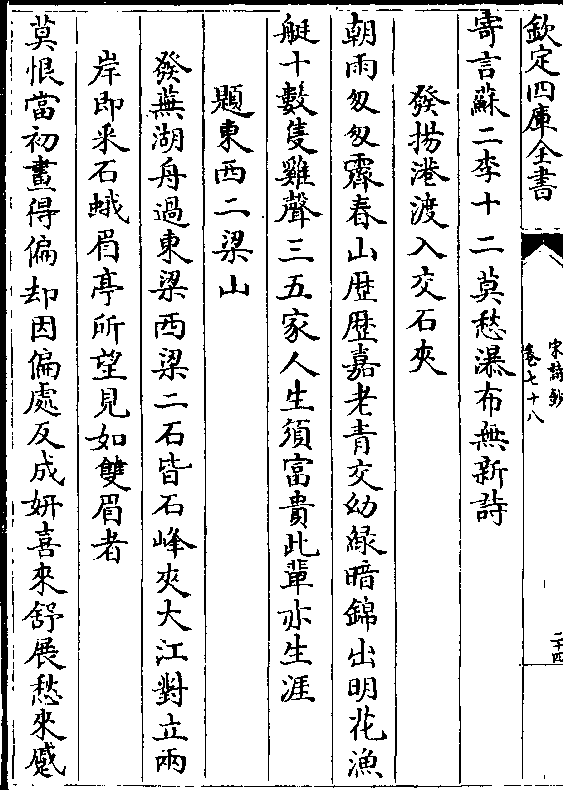 欽定四庫全書
宋詩鈔
卷七十八
二十四
寄言蘇二李十二莫愁瀑布無新詩
發揚港渡入交石夾
朝雨匆匆霽春山歴歴嘉老青交幼緑暗錦出明花漁
艇十數隻雞聲三五家人生須富貴此輩亦生涯
題東西二梁山
發蕪湖舟過東梁西梁二石皆石峰夾大江對立兩
岸即采石蛾眉亭所望見如雙眉者
莫恨當初畫得偏却因偏處反成妍喜來舒展愁來蹙